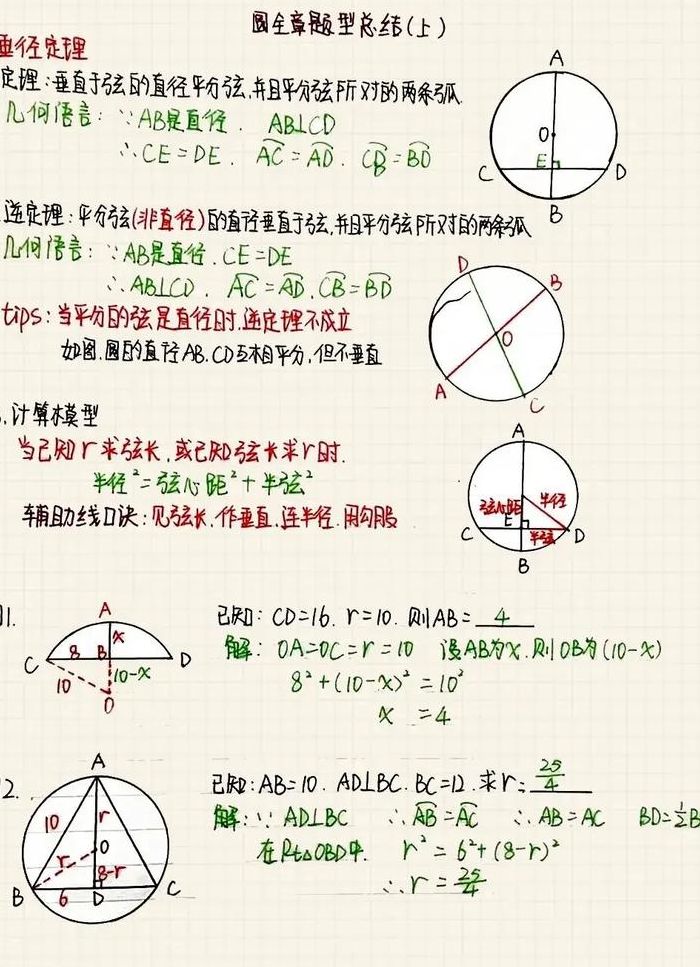 圆全章题型总结(上)
垂径定理
定理:垂直于弦的直径平分弦,并且平分弦所对的两条弧.
几何语言: ∵AB是直径. AB⊥CD
∴CE=DE. A͡C=A͡D. C͡B=B͡D
A
O
C E D
B
逆定理:平分弦(非直径)的直径垂直于弦,并且平分弦所对的两条弧
几何语言: ∵AB是直径.CE=DE
∴AB⊥CD. A͡C=A͡D.C͡B=B͡D
tips:当平分的弦是直径时.逆定理不成立
如图.圆的直径AB.CD互相平分,但不垂直
D B
O
A C
.计算模型
当已知r求弦长.或已知弦长求r时.
半径²=弦心距²+半弦²
辅助线口诀:见弦长.作垂直.连半径.用勾股
A
弦心距 半径
C E D
半弦
B
1.
A
x
C 8 B D
10 10-x
O
已知:CD=16. r=10.则AB= 4
解: OA=OC=r=10 设AB为x.则OB为(10-x)
8²+(10-x)²=10²
x =4
2.
A
10 r
O
r 8-r
B 6 D C
已知:AB=10. AD⊥BC. BC=12.求r= 25/4
解:∵ AD⊥BC ∴A͡B=A͡C ∴AB=AC BD=½B
在Rt△OBD中. r²=6²+(8-r)²
∴r=25/4